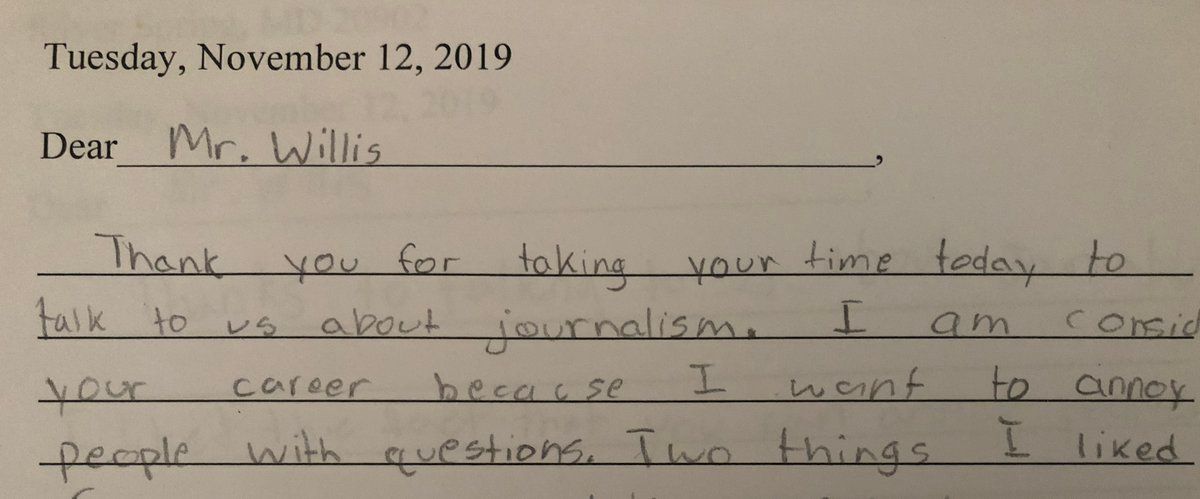 Tuesday, November 12, 2019
Dear Mr. Willis,
Thank you for taking your time today to
talk to us about journalism. I am consid
your career becacse I want to annoy
people with questions. Two things I liked